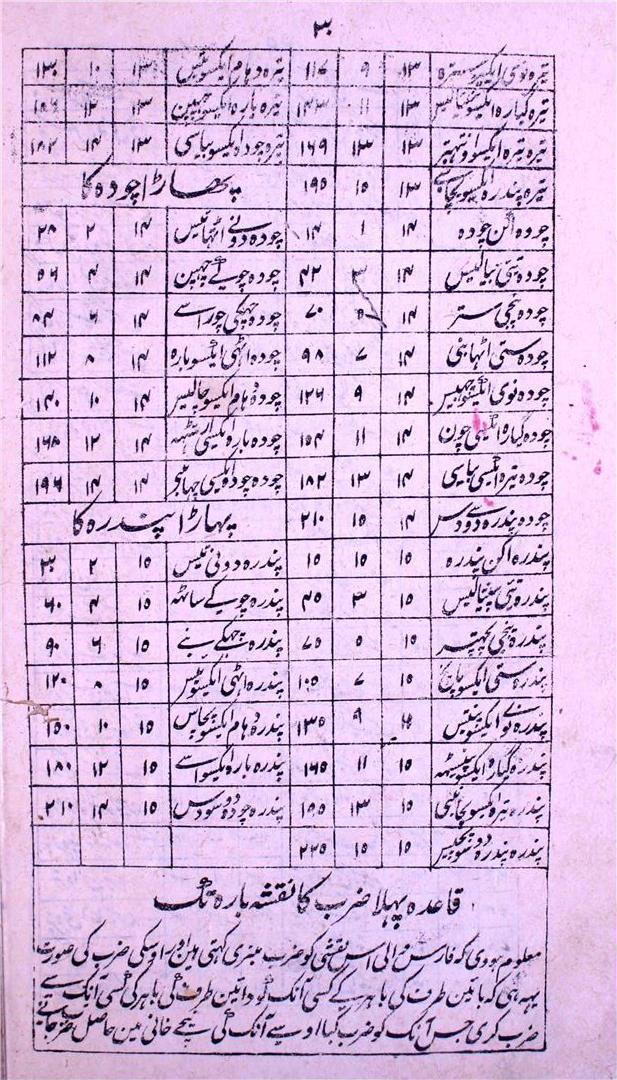 ۳
تیرہ نوی ۱۳ ۹ ۱۱۷ تیرہ دہام ایکسو تیس ۱۳ ۱۰ ۱۳۰
تیرہ گیارہ ۱۳ ۱۱ ۱۴۳ تیرہ بارہ ایکسو چھپن ۱۳ ۱۲ ۱۵۶
تیرہ تیرہ ایکسو اونہتر ۱۳ ۱۳ ۱۶۹ تیرہ چودہ ایکسو بیاسی ۱۳ ۱۴ ۱۸۲
تیرہ پندرہ ایکسو پچانے ۱۳ ۱۵ ۱۹۵ پھاڑا چودہ کا
چودہ اکن چودہ ۱۴ ۱ ۱۴ چودہ دونے اٹھائیس ۱۴ ۲ ۲۸
چودہ تئی بیالیس ۱۴ ۳ ۴۲ چودہ چوکے چھپن ۱۴ ۴ ۵۶
چودہ پنجی ستر ۱۴ ۵ ۷۰ چودہ چھکی چوراسے ۱۴ ۶ ۸۴
چودہ ستی اٹھانی ۱۴ ۷ ۹۸ چودہ اٹھی ایکسو بارہ ۱۴ ۸ ۱۱۲
چودہ نوی ۱۴ ۹ ۱۲۶ چودہ دہام ایکسو چالیس ۱۴ ۱۰ ۱۴۰
چودہ گیارہ چون ۱۴ ۱۱ ۱۵۴ چودہ بارہ ۱۴ ۱۲ ۱۶۸
چودہ تیرہ بیاسی ۱۴ ۱۳ ۱۸۲ چودہ چودہ ۱۴ ۱۴ ۱۹۶
چودہ پندرہ دو سے دس ۱۴ ۱۵ ۲۱۰ پہاڑا پندرہ کا
پندرہ اکن پندرہ ۱۵ ۱ ۱۵ پندرہ دونی تیس ۱۵ ۲ ۳۰
پندرہ تئی پینتالیس ۱۵ ۳ ۴۵ پندرہ چوکے ساٹھہ ۱۵ ۴ ۶۰
پندرہ پنجی پچہتر ۱۵ ۵ ۷۵ پندرہ چھکے نبے ۱۵ ۶ ۹۰
پندرہ ستی ایکسو پانچ ۱۵ ۷ ۱۰۵ پندرہ اٹھی ایکسو بیس ۱۵ ۸ ۱۲۰
پندرہ نوے ایکسو پینتیس ۱۵ ۹ ۱۳۵ پندرہ دہام ایکسو پچاس ۱۵ ۱۰ ۱۵۰
پندرہ گیارہ ایکسو پینسٹھہ ۱۵ ۱۱ ۱۶۵ پندرہ بارہ ایکسو اسے ۱۵ ۱۲ ۱۸۰
پندرہ تیرہ ایکسو پچانبی ۱۵ ۱۳ ۱۹۵ پندرہ چودہ دو سو دس ۱۵ ۱۴ ۲۱۰
پندرہ پندرہ دو سو پچیس ۱۵ ۱۵ ۲۲۵
قاعدہ پہلا ضرب کا نقشہ بارہ تک
معلوم ہودی کہ فارس والی اس نقشی کو ضرب منبری کہتی ہین اور اوسکی ضرب کی صورت
یہہ ہی کہ بائین طرف کی باہر کے کسی آنک کو داتین طرف کی باہر کی کسی آنک سے
ضرب کری جس آنک کو ضرب کیا اوسے آنک کی نیچے خانی مین حاصل ضرب جانے